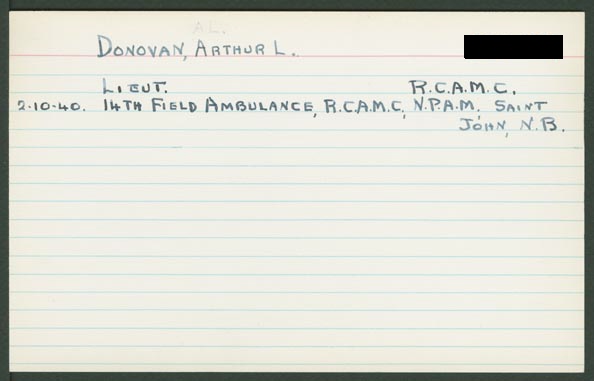 AL.
DONOVAN, ARTHUR L.
LIEUT. R.C.A.M.C.
2-10-40. 14TH FIELD AMBULANCE, R.C.A.M.C, N.P.A.M, SAINT
JOHN, N.B.